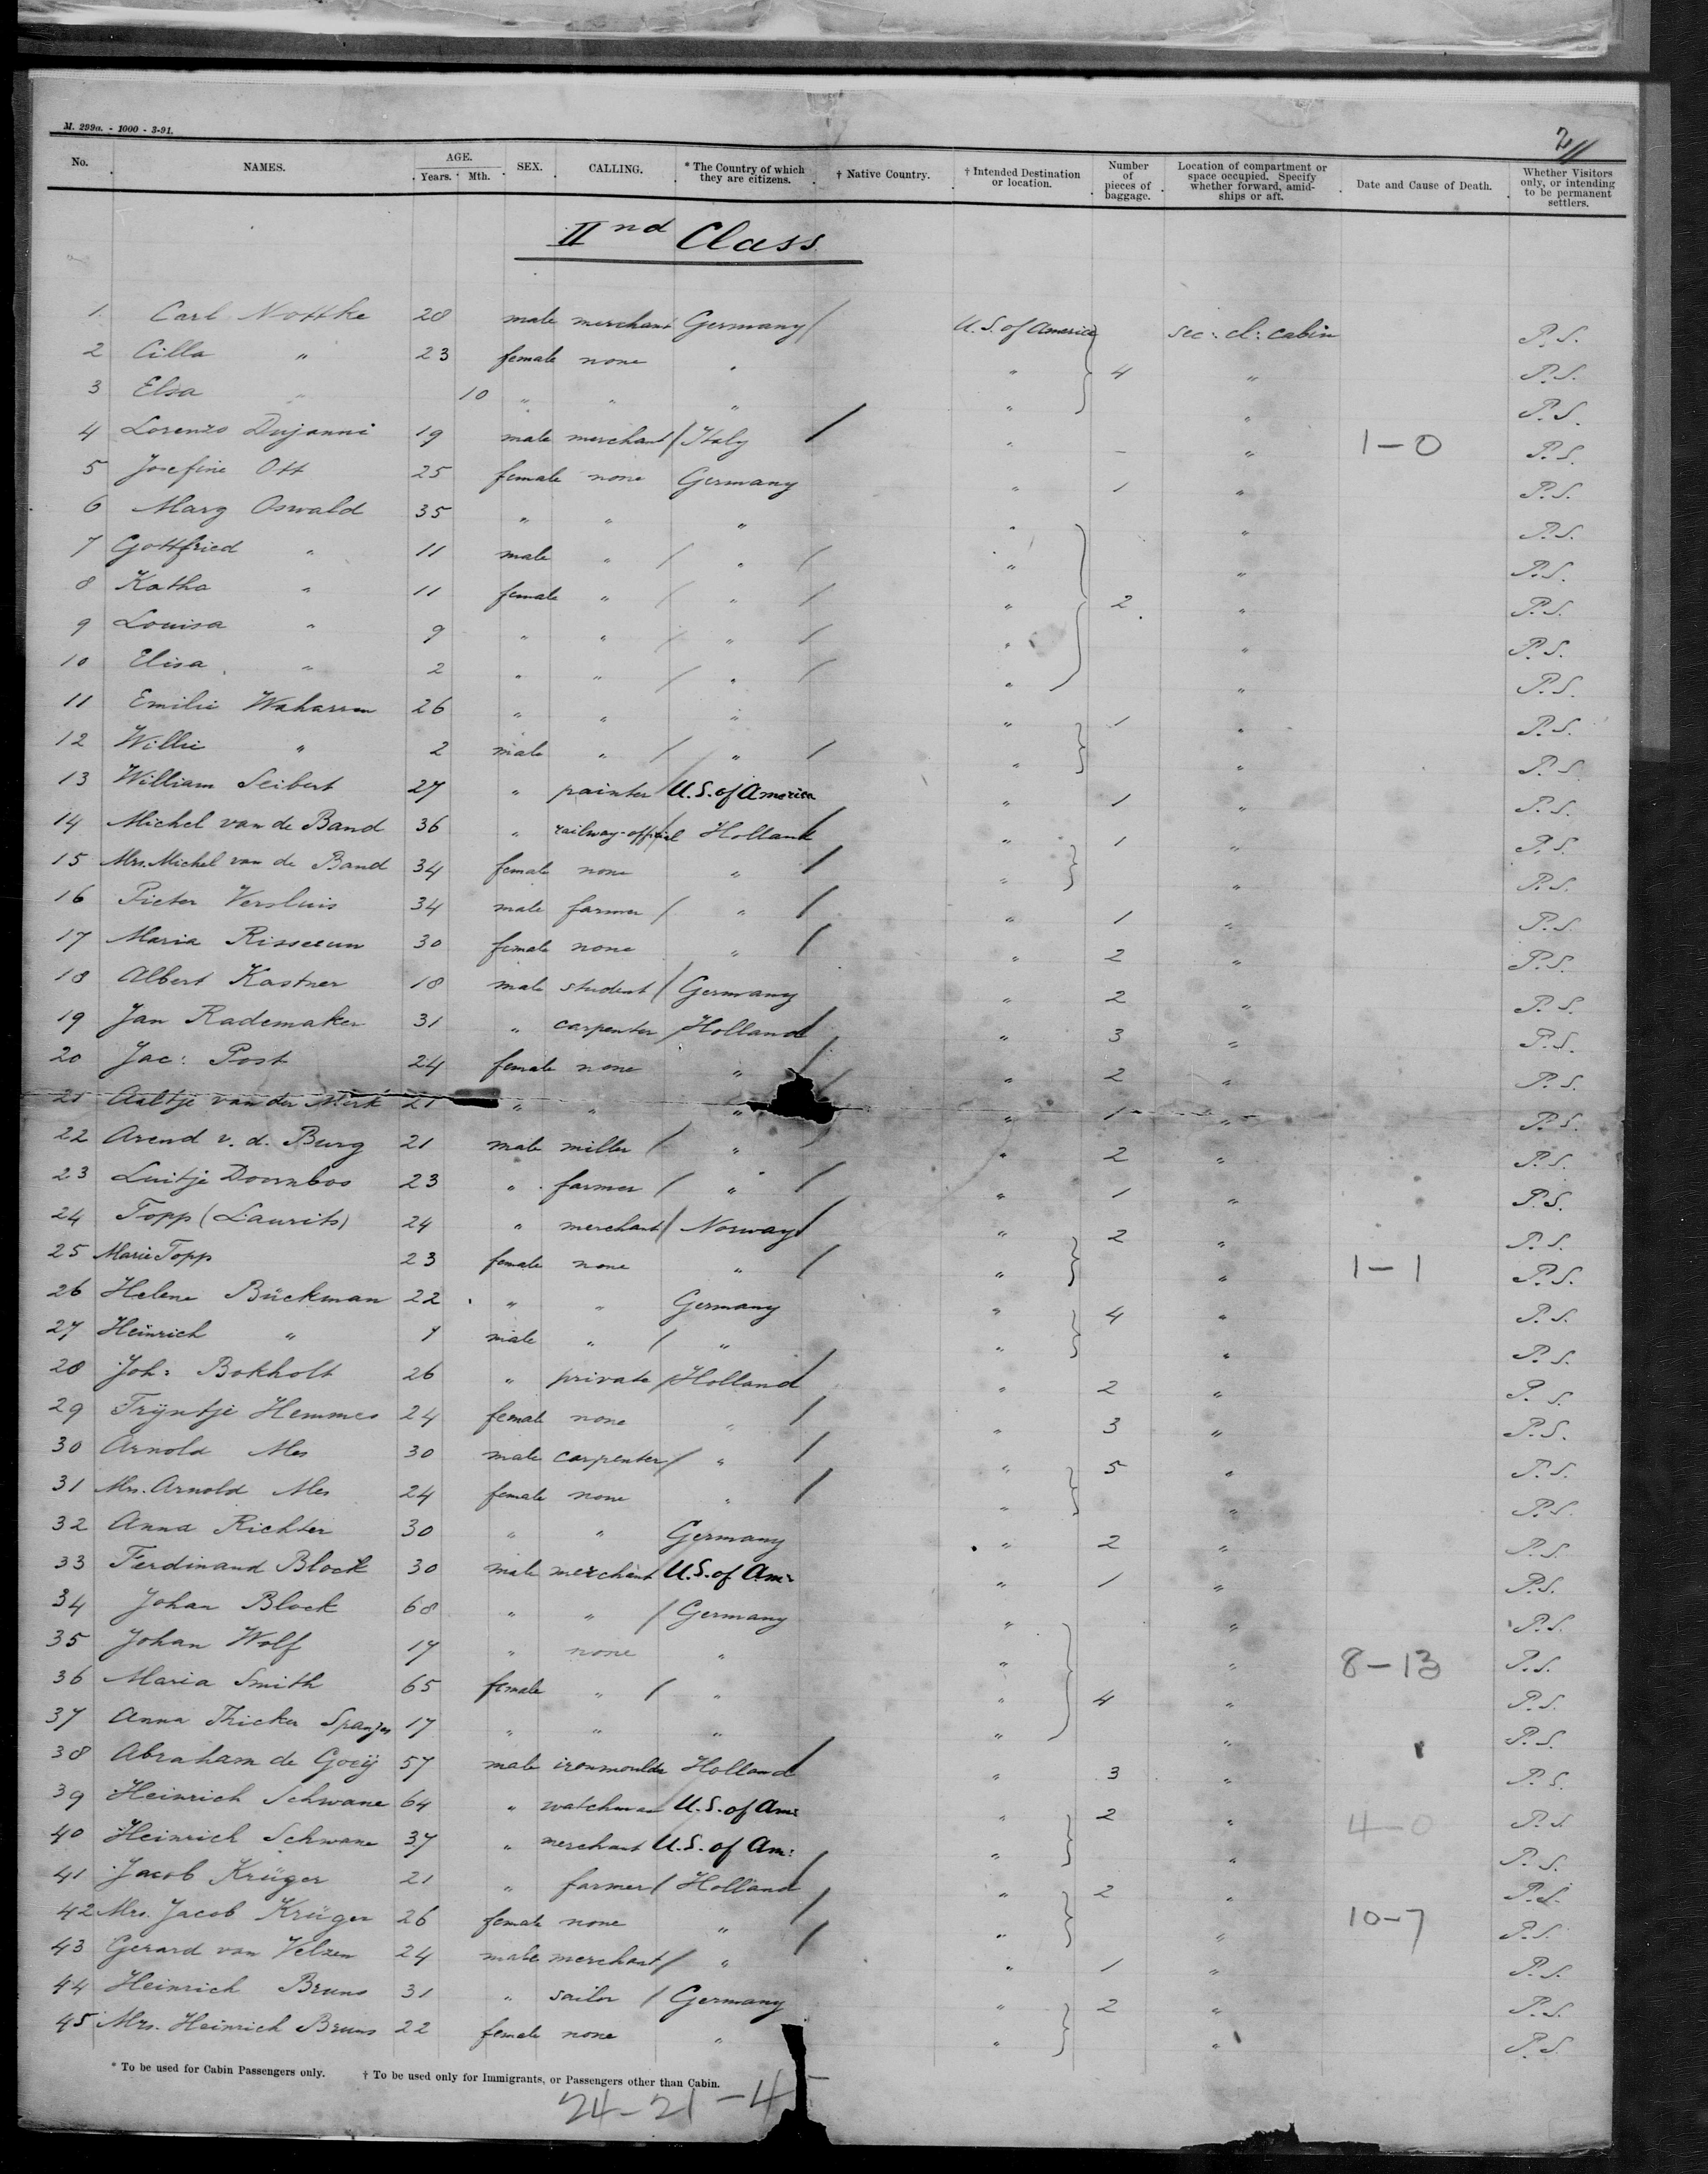 M. 299a. - 1000 - 3-91.
2
No. NAMES. AGE. Years. Mth. SEX. CALLING. * The Country of which they are citizens. † Native Country. † Intended Destination or location. Number of pieces of baggage. Location of compartment or space occupied. Specify whether forward, amidships or aft. Date and Cause of Death. Whether Visitors only, or intending to be permanent settlers.
IInd Class
1 Carl Nottke 28 male merchant Germany / U.S. of America sec: cl: cabin P.S.
2 Cilla " 23 female none " " 4 " P.S.
3 Elsa " 10 " " " " " P.S.
4 Lorenzo Dujanni 19 male merchant / Italy / " - " 1-0 P.S.
5 Josefine Ott 25 female none Germany " 1 " P.S.
6 Marg Oswald 35 " " " " " P.S.
7 Gottfried " 11 male " / " / " " P.S.
8 Katha " 11 female " / " / " 2 " P.S.
9 Louisa " 9 " " / " / " " P.S.
10 Elisa " 2 " " / " / " " P.S.
11 Emilie 26 " " " " 1 " P.S.
12 Willie " 2 male " / " / " " P.S.
13 William Seibert 27 " painter / U.S. of America " 1 " P.S.
14 Michel van de Band 36 " railway-official Holland " 1 " P.S.
15 Mrs. Michel van de Band 34 female none " / " " P.S.
16 Pieter Versluis 34 male farmer / " / " 1 " P.S.
17 Maria Risseeuw 30 female none " / " 2 " P.S.
18 Albert Kastner 18 male student / Germany " 2 " P.S.
19 Jan Rademaker 31 " carpenter / Holland / " 3 " P.S.
20 Jac: Post 24 female none " / " 2 " P.S.
21 Aaltje van der Merk 21 " " " / " 1 " P.S.
22 Arend v. d. Burg 21 male miller / " / " 2 " P.S.
23 Luitje Doornbos 23 " farmer / " / " 1 " P.S.
24 Topp (Laurits) 24 " merchant / Norway / " 2 " P.S.
25 Marie Topp 23 female none " / " " 1-1 P.S.
26 Helene Bückman 22 " " Germany " 4 " P.S.
27 Heinrich " male " / " " " P.S.
28 Joh: Bokholt 26 " private / Holland / " 2 " P.S.
29 Trijntje Hemmes 24 female none " / " 3 " P.S.
30 Arnold Mes 30 male carpenter / " / " 5 " P.S.
31 Mrs. Arnold Mes 24 female none " / " " P.S.
32 Anna Richter 30 " " Germany " 2 " P.S.
33 Ferdinand Block 30 male merchant U.S. of Am: " 1 " P.S.
34 Johan Block 68 " " / Germany " " P.S.
35 Johan Wolf 17 " none " " " 8-13 P.S.
36 Maria Smith 65 female " / " " 4 " P.S.
37 Anna Thicker 17 " " " " " P.S.
38 Abraham de Gooij 57 male ironmoulder Holland / " 3 " P.S.
39 Heinrich Schwane 64 " watchman U.S. of Am: " 2 " 4-0 P.S.
40 Heinrich Schwane 37 " merchant U.S. of Am: " " P.S.
41 Jacob Krüger 21 " farmer / Holland / " 2 " P.S.
42 Mrs. Jacob Krüger 26 female none " / " " 10-7 P.S.
43 Gerard van Velzen 24 male merchant / " / " 1 " P.S.
44 Heinrich Bruns 31 " sailor / Germany " 2 " P.S.
45 Mrs. Heinrich Bruns 22 female none " " " P.S.
* To be used for Cabin Passengers only. † To be used only for Immigrants, or Passengers other than Cabin.
24-21-45